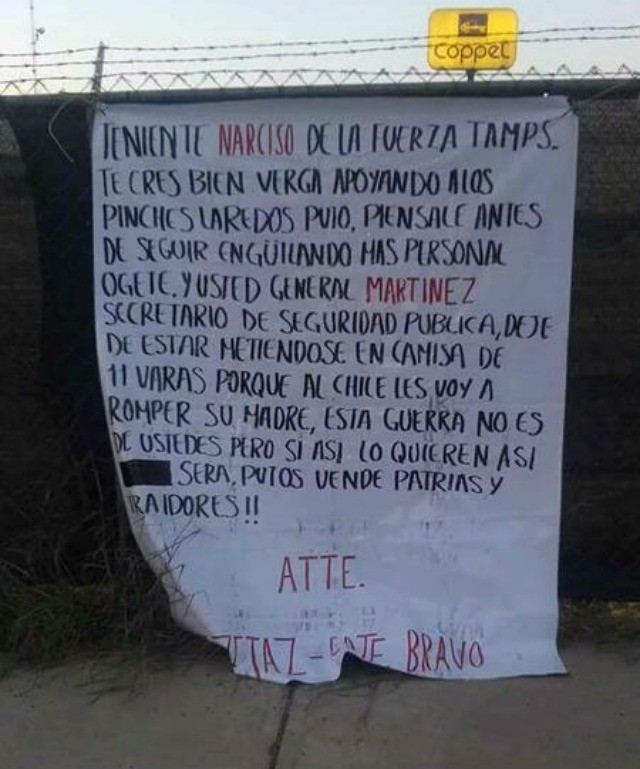 coppel
TENIENTE NARCISO DE LA FUERZA TAMPS.
TE CRES BIEN VERGA APOYANDO A LOS
PINCHES LAREDOS PUTO, PIENSALE ANTES
DE SEGUIR ENGÜILANDO MAS PERSONAL
OGETE. Y USTED GENERAL MARTINEZ
SECRETARIO DE SEGURIDAD PUBLICA, DEJE
DE ESTAR METIENDOSE EN CAMISA DE
11 VARAS PORQUE AL CHILE LES VOY A
ROMPER SU MADRE, ESTA GUERRA NO ES
DE USTEDES PERO SI ASI LO QUIEREN ASI
SERA, PUTOS VENDE PATRIAS Y
TRAIDORES!!
ATTE.
BRAVO